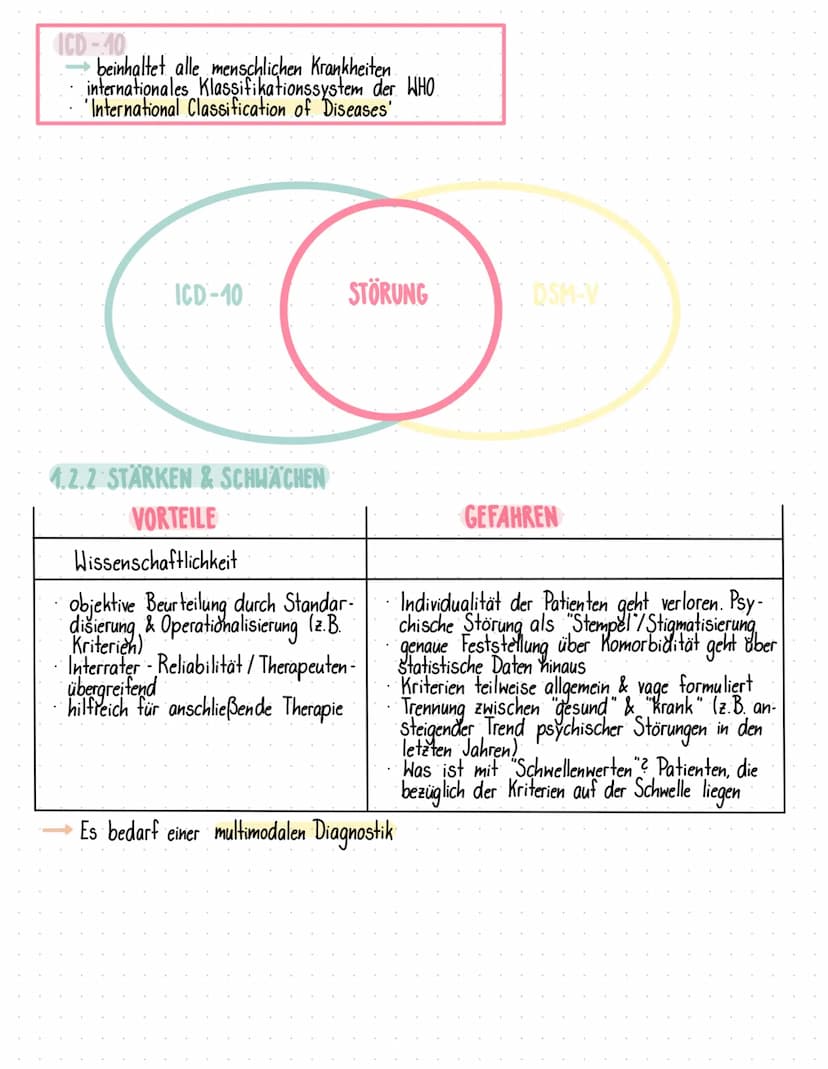 ICD-10
→ beinhaltet alle menschlichen Krankheiten
· internationales Klassifikationssystem der WHO
· 'International Classification of Diseases'
ICD-10 STÖRUNG DSM-V
1.2.2 STÄRKEN & SCHWÄCHEN
VORTEILE
Wissenschaftlichkeit
· objektive Beurteilung durch Standar-
disierung & Operationalisierung (z.B.
Kriterien)
· Interrater-Reliabilität / Therapeuten-
übergreifend
· hilfreich für anschließende Therapie
GEFAHREN
· Individualität der Patienten geht verloren. Psy-
chische Störung als "Stempel"/Stigmatisierung
· genaue Feststellung über Komorbidität geht über
statistische Daten hinaus
· Kriterien teilweise allgemein & vage formuliert
· Trennung zwischen "gesund" & "krank" (z.B. an-
steigender Trend psychischer Störungen in den
letzten Jahren)
· Was ist mit "Schwellenwerten"? Patienten, die
bezüglich der Kriterien auf der Schwelle liegen
→ Es bedarf einer multimodalen Diagnostik